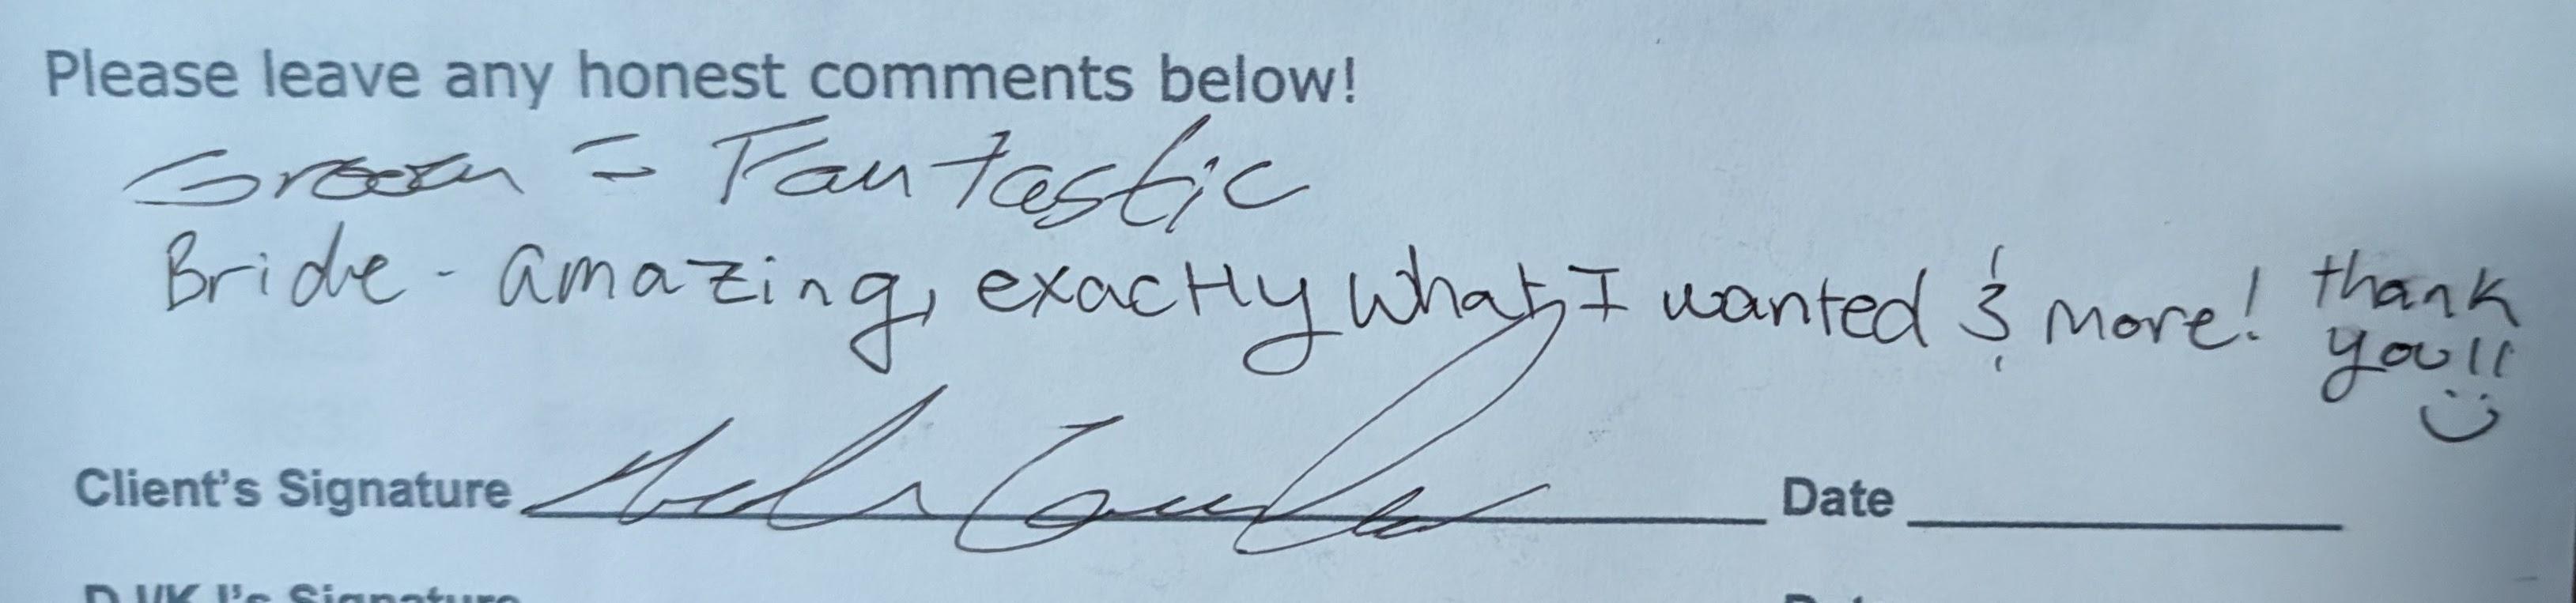 Please leave any honest comments below!
Groom = Fantastic
Bride - amazing, exactly what I wanted & more! thank
you!! :)
Client's Signature Date
DJ/KJ's Signature